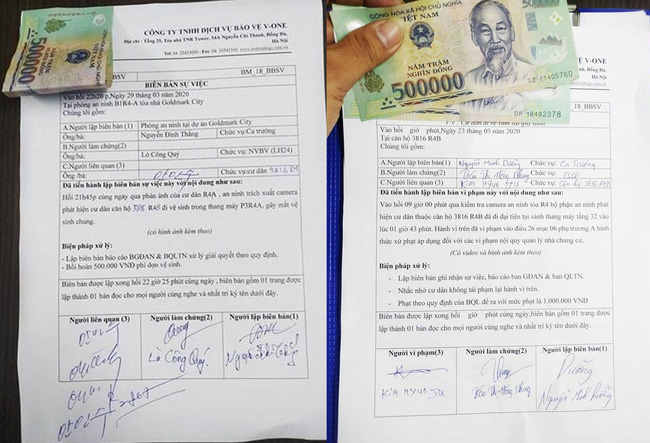 CÔNG TY TNHH DỊCH VỤ BẢO VỆ V-ONE
Địa chỉ: Tầng 25, Tòa nhà TNR Tower, 54A Nguyễn Chí Thanh, Đống Đa,
Hà Nội
500000
BBSV
BM_18_BBSV
BIÊN BẢN SỰ VIỆC
Vào hồi 22h20 p,Ngày 29 tháng 03 năm 2020
Tại phòng an ninh B1R4-A tòa nhà Goldmark City
Chúng tôi gồm:
A.Người lập biên bản (1) Phòng an ninh tại dự án Goldmark City
Ông/bà: Nguyễn Đình Thắng Chức vụ:Ca trưởng
B.Người làm chứng(2)
Ông/bà: Lò Công Quý Chức vụ: NVBV (LH24)
C.Người liên quan (3)
Ông/bà: Chức vụ:cư dân
Đã tiến hành lập biên bản sự việc này với nội dung như sau:
Hồi 21h45p cùng ngày qua phản ánh của cư dân R4A , an ninh trích xuất camera
phát hiện cư dân căn hộ R45 đi vệ sinh trong thang máy P3R4A, gây mất vệ
sinh chung.
(có hình ảnh kèm theo)
Biện pháp xử lý:
- Lập biên bản báo cáo BGĐAN & BQLTN xử lý giải quyết theo quy định.
- Bồi hoàn 500.000 VNĐ phí dọn vệ sinh.
Biên bản được lập xong hồi 22 giờ 25 phút cùng ngày , biên bản gồm 01 trang được
lập thành 01 bản đọc cho mọi người cùng nghe và nhất trí ký tên dưới đây.
Người liên quan (3) Người làm chứng(2) Người lập biên bản(1)
Lò Công Quý
CỘNG HÒA XÃ HỘI CHỦ NGHĨA
VIỆT NAM
500000
NĂM TRĂM
NGHÌN ĐỒNG
500000
SZ 11405760
DP 18482378
BBSV
Vào hồi giờ phút,Ngày 23 tháng 05 năm 2020
Tại căn hộ 3816 R4B
Chúng tôi gồm:
A.Người lập biên bản(1) Nguyễn Minh Dưỡng Chức vụ: Ca Trưởng
B.Người làm chứng(2) Chức vụ:
C.Người vi phạm(3) KIM MYUN SU Chức vụ:
Đã tiến hành lập biên bản vi phạm này với nội dung như sau:
Vào hồi 09 giờ 00 phút qua kiểm tra camera an ninh tòa R4 bộ phận an ninh phát
hiện cư dân thuộc căn hộ 3816 R4B đã đi đại tiện tại sảnh thang máy tầng 32 vào
lúc 01 giờ 43 phút. Hành vi trên đã vi phạm vào điều 26 mục 06 phụ trương A hình
thức xử phạt áp dụng đối với các vi phạm nội quy quản lý nhà chung cư.
(Có video và hình ảnh kèm theo)
Biện pháp xử lý:
- Lập biên bản ghi nhận sự việc, báo cáo ban GĐAN & ban QLTN.
- Nhắc nhở cư dân không tái phạm lại hành vi trên.
- Phạt theo quy định của BQL đề ra với mức phạt là 1.000.000 VNĐ
Biên bản được lập xong hồi giờ phút cùng ngày,biên bản gồm 01 trang được
lập thành 01 bản đọc cho mọi người cùng nghe và nhất trí ký tên dưới đây.
Người vi phạm(3) Người làm chứng(2) Người lập biên bản(1)
KIM MYUN SU
Nguyễn Minh Dưỡng